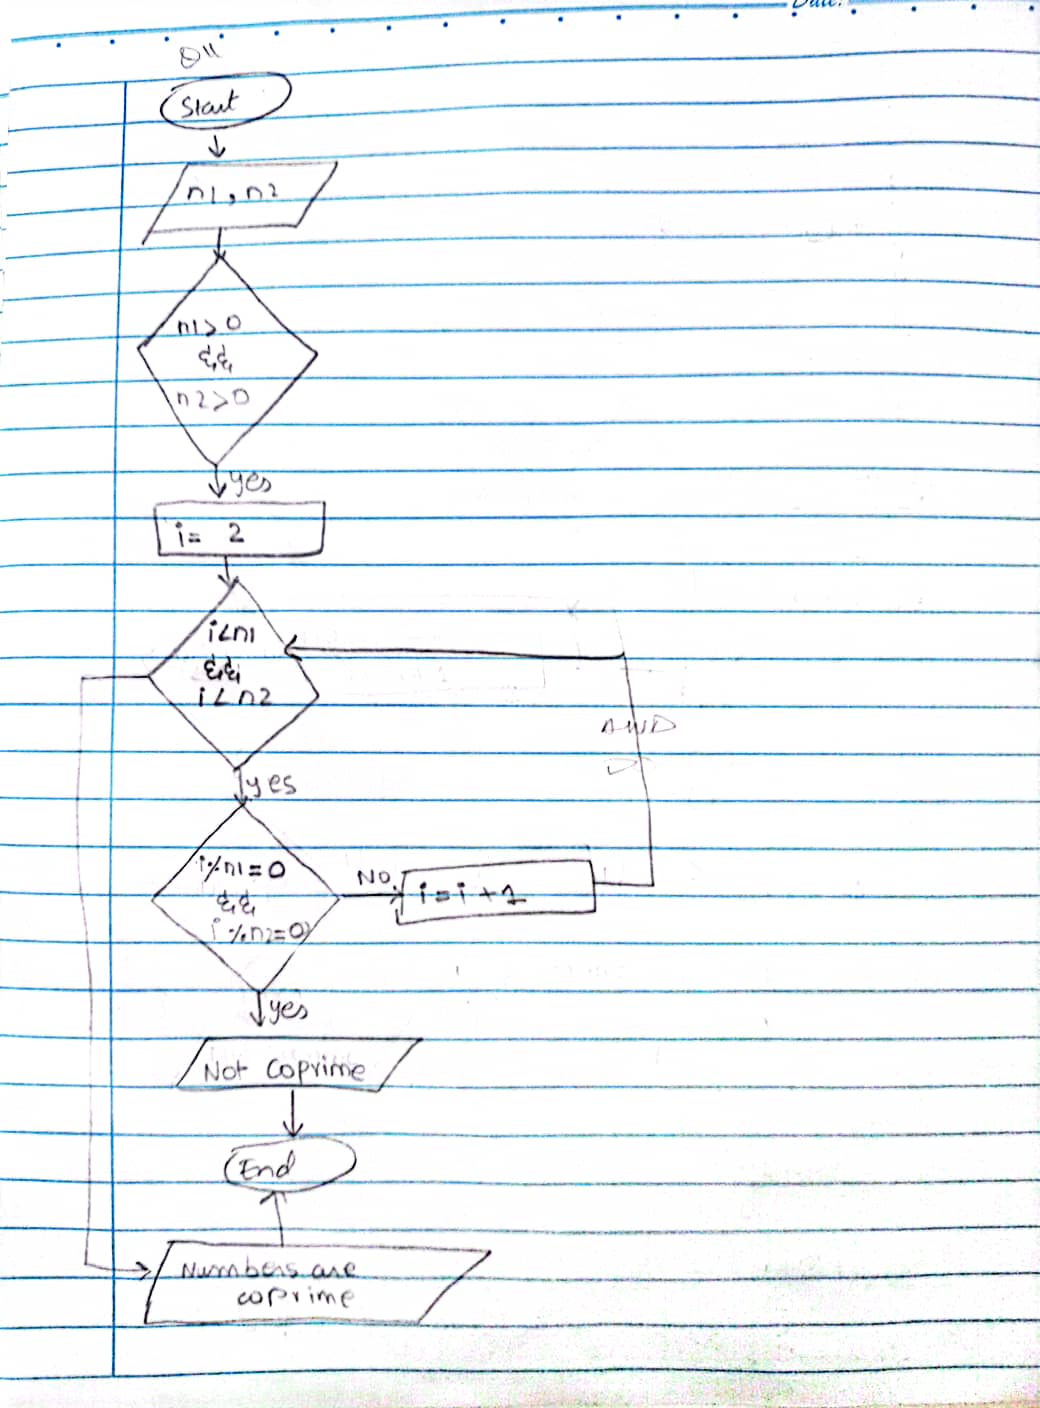 Date:
Q11
Start
n1, n2
n1>0
&&
n2>0
yes
i= 2
i<n1
&&
i<n2
AND
yes
i%n1=0
&&
i%n2=0
No
i=i+1
yes
Not coprime
End
Numbers are
coprime